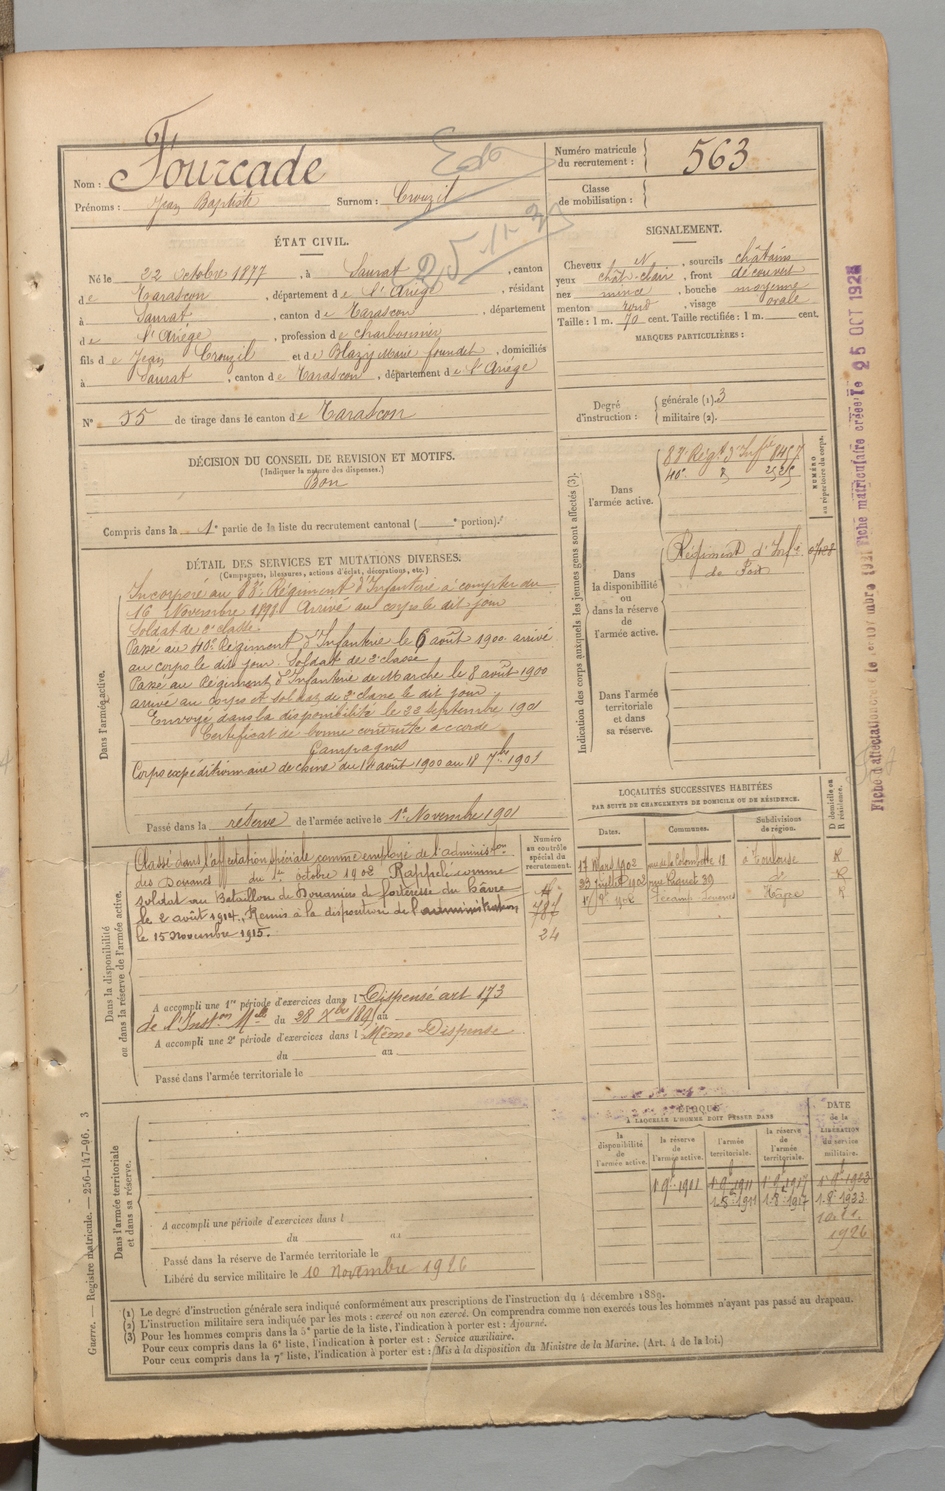 Nom : Fourcade
Prénoms : Jean Baptiste Surnom : Crouzil
Numéro matricule du recrutement : 563
Classe de mobilisation :
ÉTAT CIVIL.
Né le 22 Octobre 1877, à Saurat, canton
de Tarascon, département de l'Ariège, résidant
à Saurat, canton de Tarascon, département
de l'Ariège, profession de charbonnier
fils de Jean Crouzil et de Blazy Marie foundet, domiciliés
à Saurat, canton de Tarascon, département de l'Ariège
N° 55 de tirage dans le canton de Tarascon
SIGNALEMENT.
Cheveux N, sourcils châtains
yeux chât-clair, front découvert
nez mince, bouche moyenne
menton rond, visage ovale
Taille : 1 m. 70 cent. Taille rectifiée : 1 m. cent.
MARQUES PARTICULIÈRES :
Degré d'instruction : générale (1). 3
militaire (2).
DÉCISION DU CONSEIL DE REVISION ET MOTIFS.
(Indiquer la nature des dispenses.)
Bon
Compris dans la 1e partie de la liste du recrutement cantonal ( e portion).
DÉTAIL DES SERVICES ET MUTATIONS DIVERSES.
(Campagnes, blessures, actions d'éclat, décorations, etc.)
Dans l'armée active.
Incorporé au Régiment d'Infanterie à compter du
16 Novembre 1898 Arrivé au corps le dit jour
Soldat de 2e classe.
Passé au 40e Régiment d'Infanterie le 6 août 1900 arrivé
au corps le dit jour. Soldat de 2e classe
Passé au Régiment d'Infanterie de Marche le 8 août 1900
arrivé au corps et soldat de 2e classe le dit jour
Envoyé dans la disponibilité le 22 Septembre 1901
Certificat de bonne conduite accordé
Campagnes
Corps expéditionnaire de chine du 14 août 1900 au 18 7bre 1901
Passé dans la réserve de l'armée active le 1er Novembre 1901
Indication des corps auxquels les jeunes gens sont affectés (3).
NUMÉRO au répertoire du corps.
Dans l'armée active.
Régt d'Infie
40e
Dans la disponibilité ou dans la réserve de l'armée active.
Régiment d'Infie
de Foix
Dans l'armée territoriale et dans sa réserve.
Fiche matriculaire créée le 25 OCT 1926
LOCALITÉS SUCCESSIVES HABITÉES
PAR SUITE DE CHANGEMENTS DE DOMICILE OU DE RÉSIDENCE.
Dates. Communes. Subdivisions de région. D domicile ou R résidence.
17 Mars 1902 rue de la Colombette 18 à Toulouse R
23 Juillet 1902 39 do R
Fécamp Hâvre R
Dans la disponibilité ou dans la réserve de l'armée active.
Numéro au contrôle spécial du recrutement.
Classé dans l'affectation spéciale comme employé de l'administon
des Douanes du 1er octobre 1902 Rappelé comme
soldat au Bataillon de Douaniers de forteresse du hâvre
le 2 août 1914. Remis à la disposition de l'administration
le 15 novembre 1915.
787
24
A accompli une 1re période d'exercices dans l Dispensé art 173
de l'Inston Mlle du 28 Xbre 1895 au
A accompli une 2e période d'exercices dans l Même Dispense
du au
Passé dans l'armée territoriale le
Dans l'armée territoriale et dans sa réserve.
A accompli une période d'exercices dans l
du au
Passé dans la réserve de l'armée territoriale le
Libéré du service militaire le 10 novembre 1926
ÉPOQUE
A LAQUELLE L'HOMME DOIT PASSER DANS
la disponibilité de l'armée active. la réserve de l'armée active. l'armée territoriale. la réserve de l'armée territoriale. DATE de la LIBÉRATION du service militaire.
1911 1911 1917 1923
1911 1917 1933
1926
(1) Le degré d'instruction générale sera indiqué conformément aux prescriptions de l'instruction du 4 décembre 1889.
(2) L'instruction militaire sera indiquée par les mots : exercé ou non exercé. On comprendra comme non exercés tous les hommes n'ayant pas passé au drapeau.
(3) Pour les hommes compris dans la 5e partie de la liste, l'indication à porter est : Ajourné.
Pour ceux compris dans la 6e liste, l'indication à porter est : Service auxiliaire.
Pour ceux compris dans la 7e liste, l'indication à porter est : Mis à la disposition du Ministre de la Marine. (Art. 4 de la loi.)
Guerre. — Registre matricule. — 256-147-96. 3